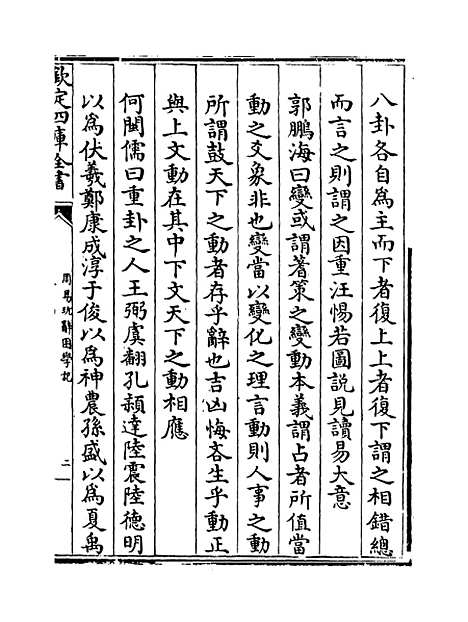 八卦各自為主而下者復上上者復下謂之相錯總
而言之則謂之因重汪惕若圖說見讀易大意
郭鵬海曰變或謂蓍策之變動本義謂占者所值當
動之爻象非也變當以變化之理言動則人事之動
所謂鼓天下之動者存乎辭也吉凶悔吝生乎動正
與上文動在其中下文天下之動相應
何閩儒曰重卦之人王弼虞翻孔穎達陸震陸德明
以為伏羲鄭康成淳于俊以為神農孫盛以為夏禹
欽定四庫全書
周易玩辭困學記
二